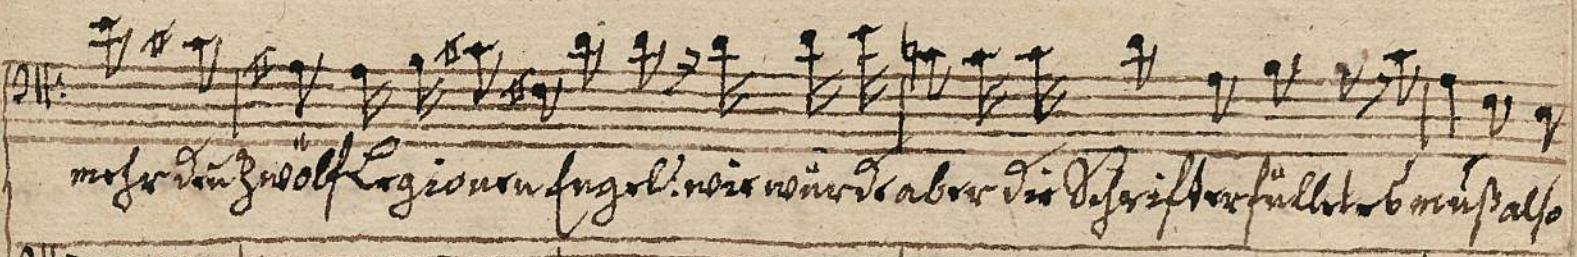 mehr den Zwölf Legionen Engel. wie würde aber die Schrifft erfüllet es muß also